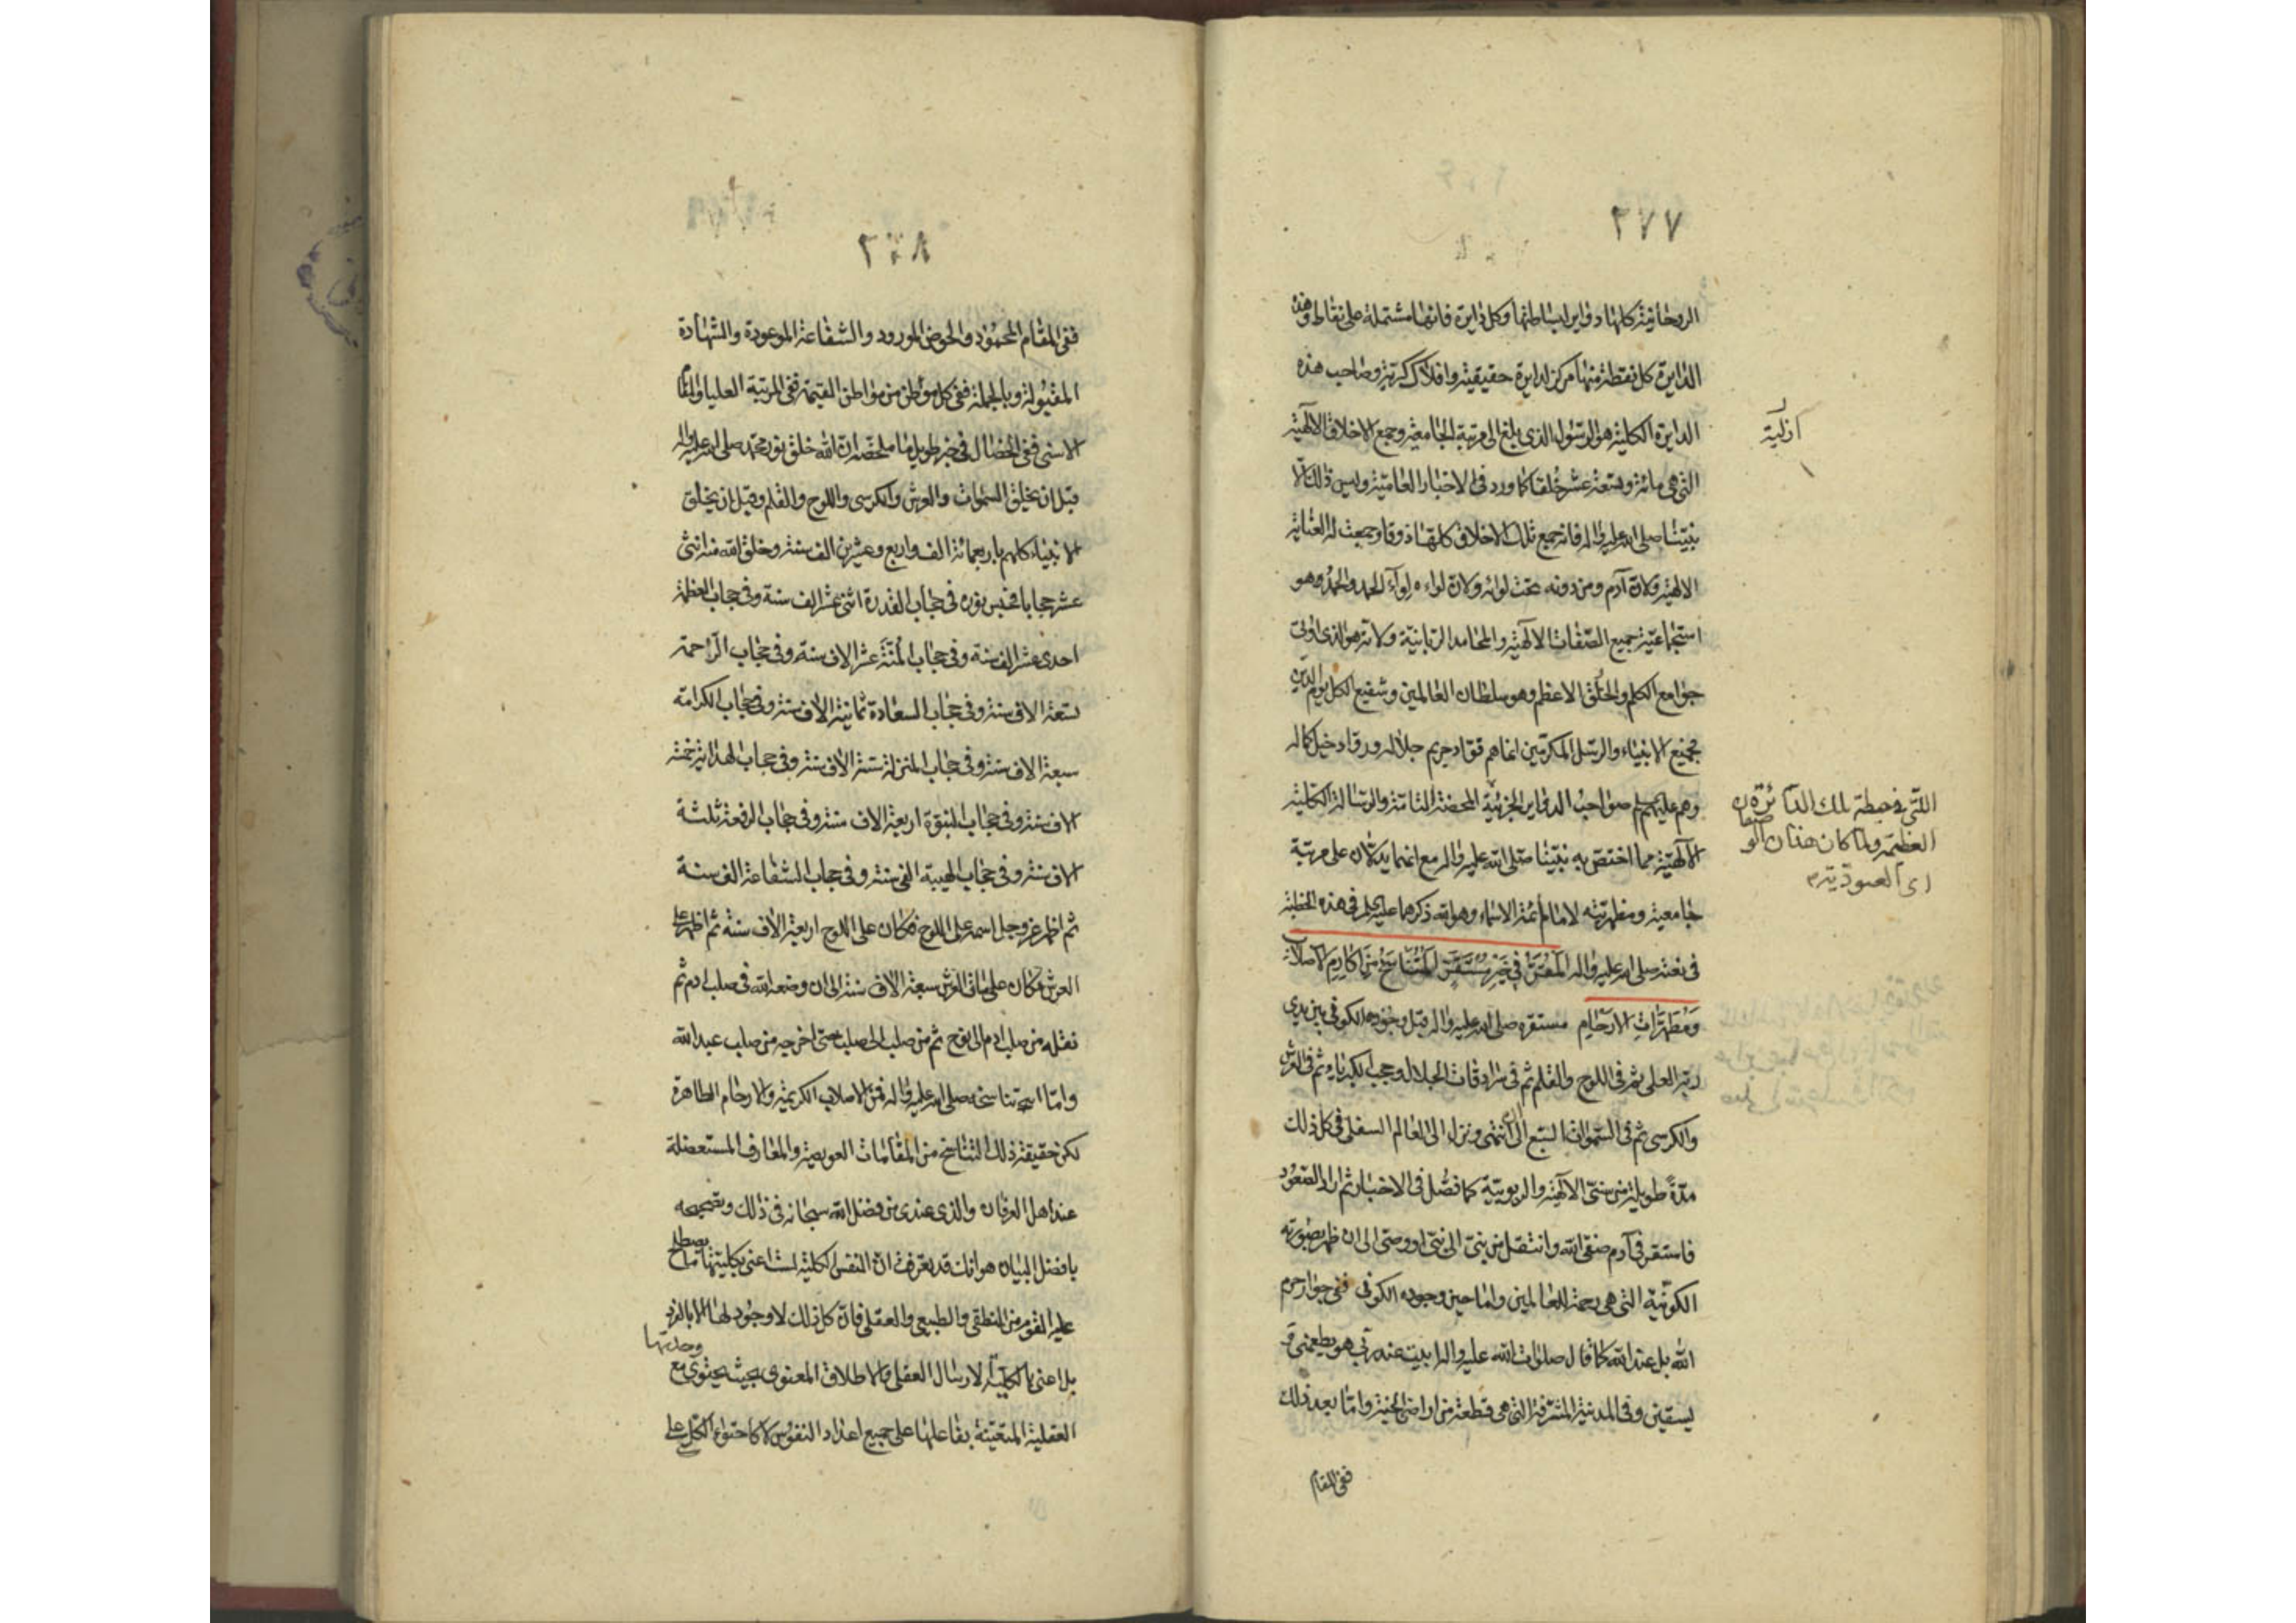 ٢٧٧
الروحانية كلها دواير لبساطتها وكل دايرة فانها مشتملة على نقاط وهذه
الدايرة كل نقطة منها مركز لدايرة حقيقية وافلاك كروية وصاحب هذه
الدايرة الكلية هو الرسول الذي بلغ الى مرتبة الجامعية وجمع الاخلاق الالهية
التي هي مائة وسبعة عشر خلقا كما ورد في الاخبار العامية وليس ذلك الا
نبينا صلى الله عليه واله فانه جمع تلك الاخلاق كلها ذوقا وجمعت له العناية
الالهية ولان آدم ومن دونه تحت لوائه ولان لواءه لواء الحمد والحمد هو
استجماعية جميع الصفات الالهية والمحامد الربانية ولانه هو الذي اوتى
جوامع الكلم والخلق الاعظم وهو سلطان العالمين وشفيع الكل يوم الدين
فجميع الانبياء والرسل المكرمين انما هم قواد حريم جلاله ورقاد خيل كماله
وهم عليهم السلم صواحب الدواير الجزئية المحضة التامة والرسالة الكلية
الالهية مما اختص به نبينا صلى الله عليه واله مع انهما يدلان على مرتبة
جامعية ومظهريته لامام أئمة الاسماء وهو الله ذكرهما عليه السلم في هذه الخطبة
في نعته صلى الله عليه واله المقر في خير مستقر المتناسخ من اكارم الاصلاب
ومطهرات الارحام مستقره صلى الله عليه واله قبل وجوده الكوني بين يدي
ربه العلى ثم في اللوح والقلم ثم في سرادقات الجلالة وحجب الكبرياء ثم في العرش
والكرسي ثم في السموات السبع الى ان انتهى ونزل الى العالم السفلى في كل ذلك
مدة طويلة من سنى الالهية والربوبية كما فصل في الاخبار ثم اراد الصعود
فاستقر في آدم صفى الله وانتقل من نبى الى نبى او وصى الى ان ظهر بصورته
الكونية التي هي رحمة للعالمين واما حين وجوده الكوني ففي جوار حرم
الله بل عند الله كما قال صلوات الله عليه واله ابيت عند ربي هو يطعمني و
يسقين وفي المدينة المشرفة التي هي قطعة من اراضي الجنة واما بعد ذلك
ففي المقام
ازلية
اللتى في حيطة تلك الدائرة
العظيمة ولما كان هذان الوصفان
اى العبودية
٢٧٨
ففي المقام المحمود والحوض المورود والشفاعة الموعودة والشهادة
المقبولة وبالجملة ففي كل موطن من مواطن القيمة ففي المرتبة العليا والمقام
الاسنى ففي الخصال في خبر طويل ما ملخصه ان الله خلق نور محمد صلى الله عليه واله
قبل ان يخلق السموات والعرش والكرسي واللوح والقلم وقبل ان يخلق
الانبياء كلهم باربعمائة الف واربع وعشرين الف سنة وخلق الله منه اثنى
عشر حجابا فحبس نوره في حجاب القدرة اثنى عشر الف سنة وفي حجاب العظمة
احدى عشر الف سنة وفي حجاب المنة عشر الاف سنة وفي حجاب الراحمة
تسعة الاف سنة وفي حجاب السعادة ثمانية الاف سنة وفي حجاب الكرامة
سبعة الاف سنة وفي حجاب المنزلة ستة الاف سنة وفي حجاب الهداية خمسة
الاف سنة وفي حجاب النبوة اربعة الاف سنة وفي حجاب الرفعة ثلثة
الاف سنة وفي حجاب الهيبة الفي سنة وفي حجاب الشفاعة الف سنة
ثم اظهر عز وجل اسمه على اللوح فكان على اللوح اربعة الاف سنة ثم اظهر على
العرش فكان على ساق العرش سبعة الاف سنة الى ان وضعه الله في صلب ادم ثم
نقله من صلب ادم الى نوح ثم من صلب الى صلب حتى اخرجه من صلب عبد الله
واما تناسخه صلى الله عليه واله فمن الاصلاب الكريمة والارحام الطاهرة
لكن حقيقة ذلك التناسخ من المقامات العويصة والمعارف المستعضلة
عند اهل العرفان والذي عندي من فضل الله سبحانه في ذلك وتصحيحه
بافضل البيان هو انك قد تعرفت ان النفس الكلية لست اعنى بكليتها ما يصطلح
عليه القوم من المنطقى والطبيعى والعقلى فان كل ذلك لا وجود لها الا بالفرد
بل اعنى بالكلية الارسال العقلى والاطلاق المعنوى بحيث يحتوى مع وحدتها
العقلية المتعينة بفاعلها على جميع اعداد النفوس لا كاحتواء الكل على